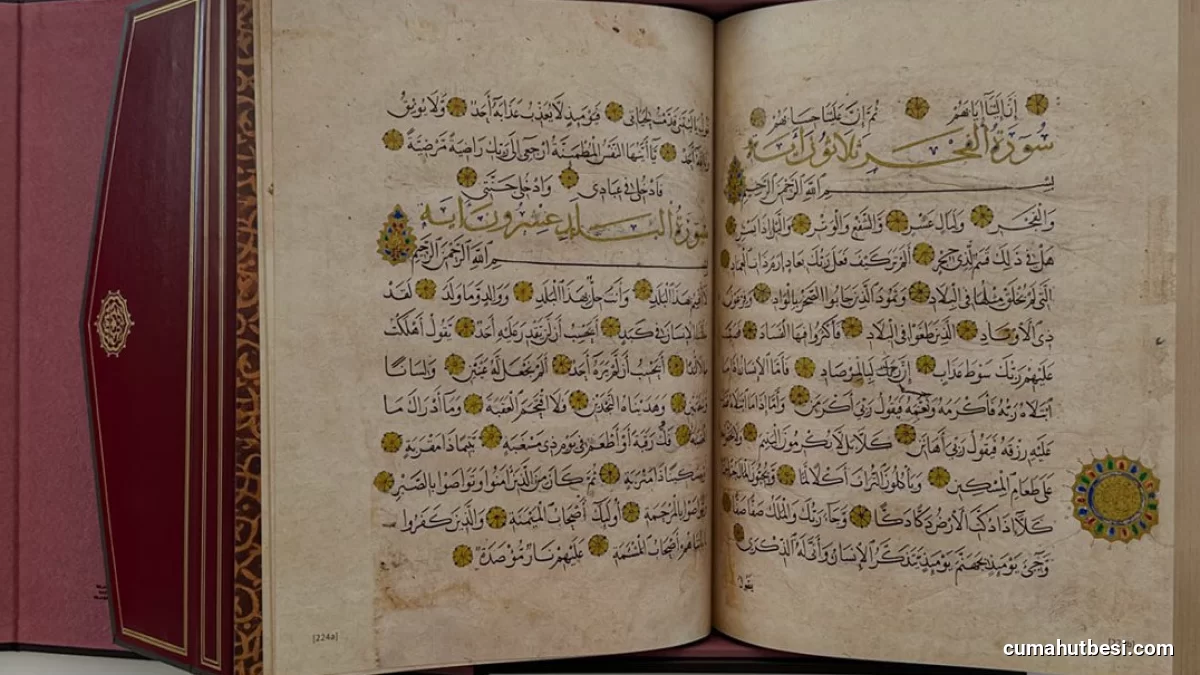 إِنَّ إِلَيْنَا إِيَابَهُمْ ثُمَّ إِنَّ عَلَيْنَا حِسَابَهُمْ
سورة الفجر ثلاثون آية
بسم الله الرحمن الرحيم
والفجر وليال عشر والشفع والوتر والليل إذا يسر
هل في ذلك قسم لذي حجر ألم تر كيف فعل ربك بعاد إرم ذات العماد
التي لم يخلق مثلها في البلاد وثمود الذين جابوا الصخر بالواد وفرعون
ذي الأوتاد الذين طغوا في البلاد فأكثروا فيها الفساد فصب
عليهم ربك سوط عذاب إن ربك لبالمرصاد فأما الإنسان إذا ما
ابتلاه ربه فأكرمه ونعمه فيقول ربي أكرمن وأما إذا ما ابتلاه
عليه رزقه فيقول ربي أهانن كلا بل لا تكرمون اليتيم
على طعام المسكين وتأكلون التراث أكلا لما وتحبون المال
كلا إذا دكت الأرض دكا دكا وجاء ربك والملك صفا صفا
وجيء يومئذ بجهنم يومئذ يتذكر الإنسان وأنى له الذكرى
يقول
يقول يا ليتني قدمت لحياتي فيومئذ لا يعذب عذابه أحد ولا يوثق
وثاقه أحد يا أيتها النفس المطمئنة ارجعي إلى ربك راضية مرضية
فادخلي في عبادي وادخلي جنتي
سورة البلد عشرون آية
بسم الله الرحمن الرحيم
لا أقسم بهذا البلد وأنت حل بهذا البلد ووالد وما ولد لقد
خلقنا الإنسان في كبد أيحسب أن لن يقدر عليه أحد يقول أهلكت
مالا لبدا أيحسب أن لم يره أحد ألم نجعل له عينين ولسانا
وشفتين وهديناه النجدين فلا اقتحم العقبة وما أدراك ما
العقبة فك رقبة أو إطعام في يوم ذي مسغبة يتيما ذا مقربة
أو مسكينا ذا متربة ثم كان من الذين آمنوا وتواصوا بالصبر
وتواصوا بالمرحمة أولئك أصحاب الميمنة والذين كفروا
بآياتنا هم أصحاب المشئمة عليهم نار مؤصدة
[224a]
cumahutbesi.com